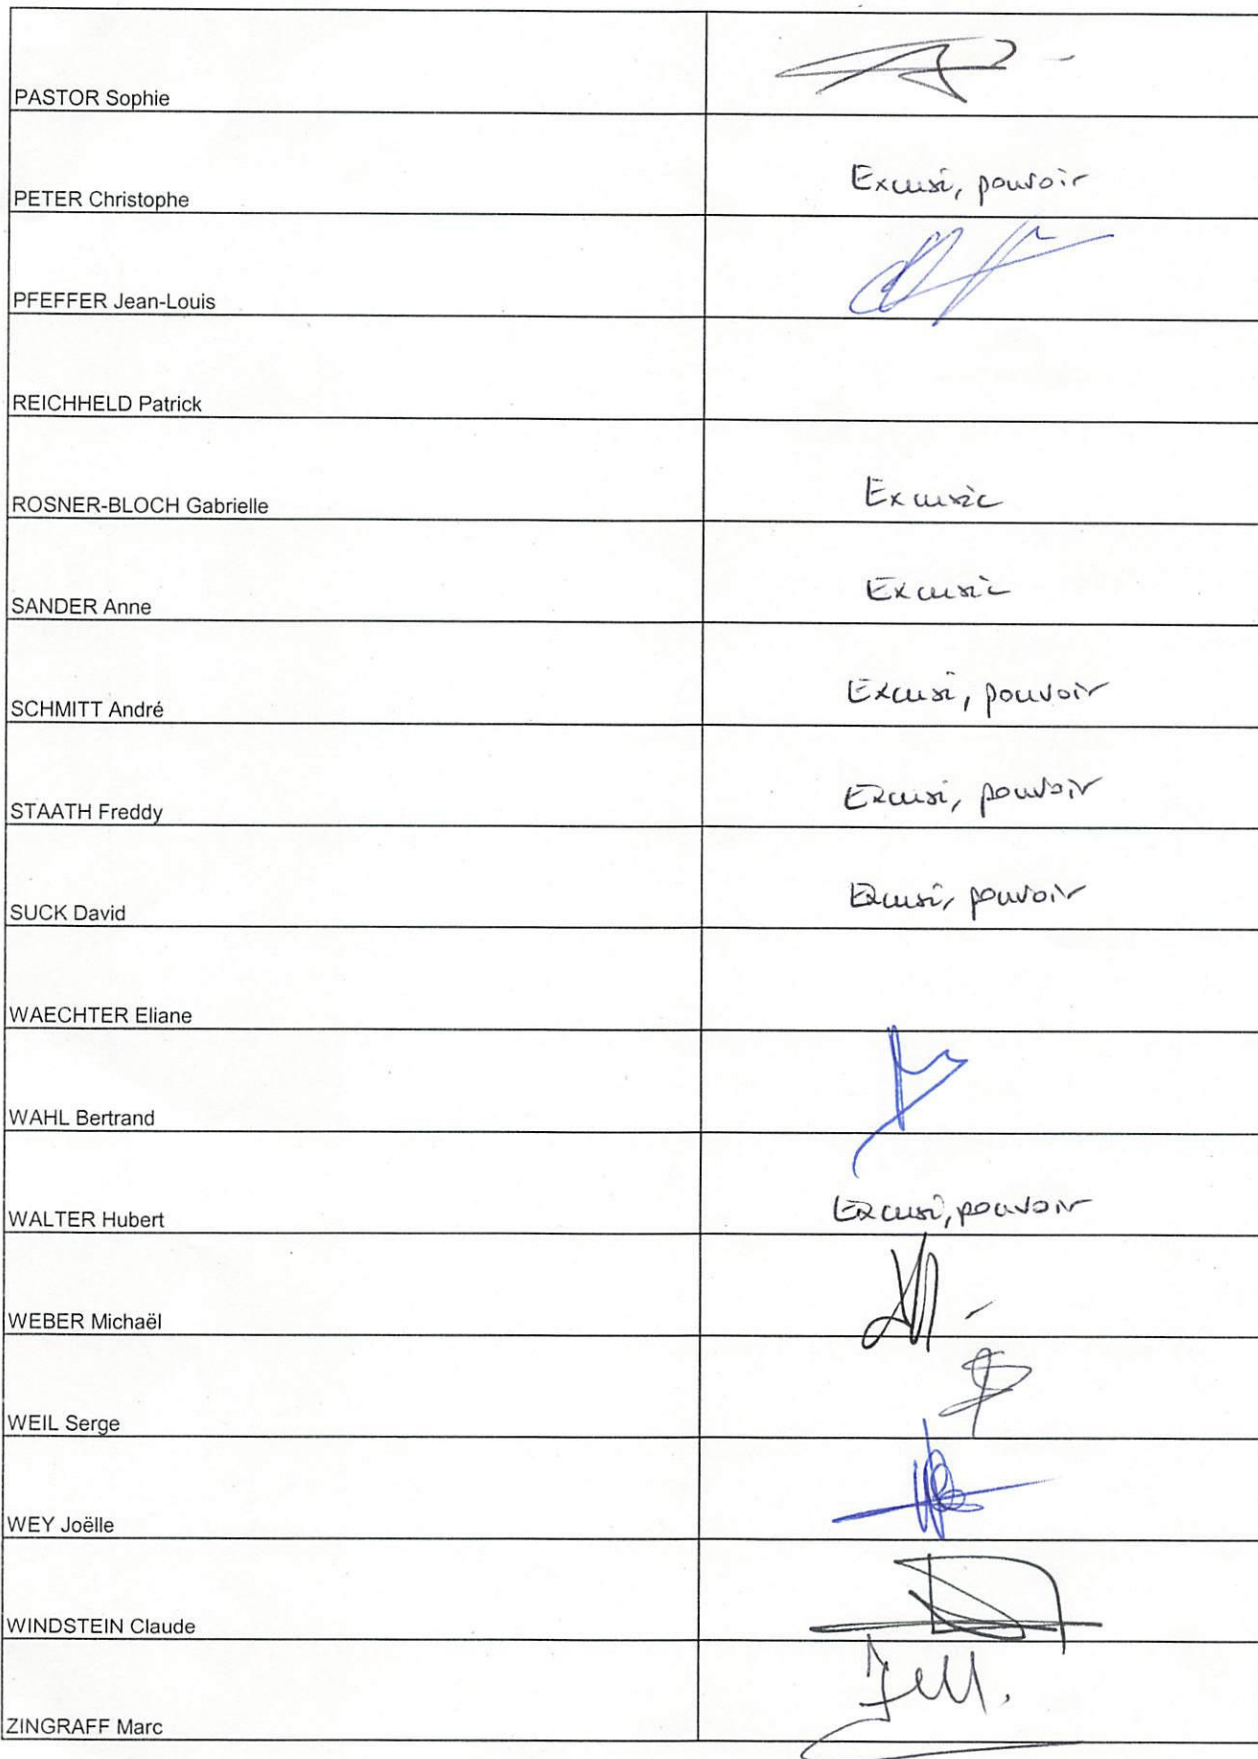 PASTOR Sophie
PETER Christophe Excusé, pouvoir
PFEFFER Jean-Louis
REICHHELD Patrick
ROSNER-BLOCH Gabrielle Excusée
SANDER Anne Excusée
SCHMITT André Excusé, pouvoir
STAATH Freddy Excusé, pouvoir
SUCK David Excusé, pouvoir
WAECHTER Eliane
WAHL Bertrand
WALTER Hubert Excusé, pouvoir
WEBER Michaël
WEIL Serge
WEY Joëlle
WINDSTEIN Claude
ZINGRAFF Marc